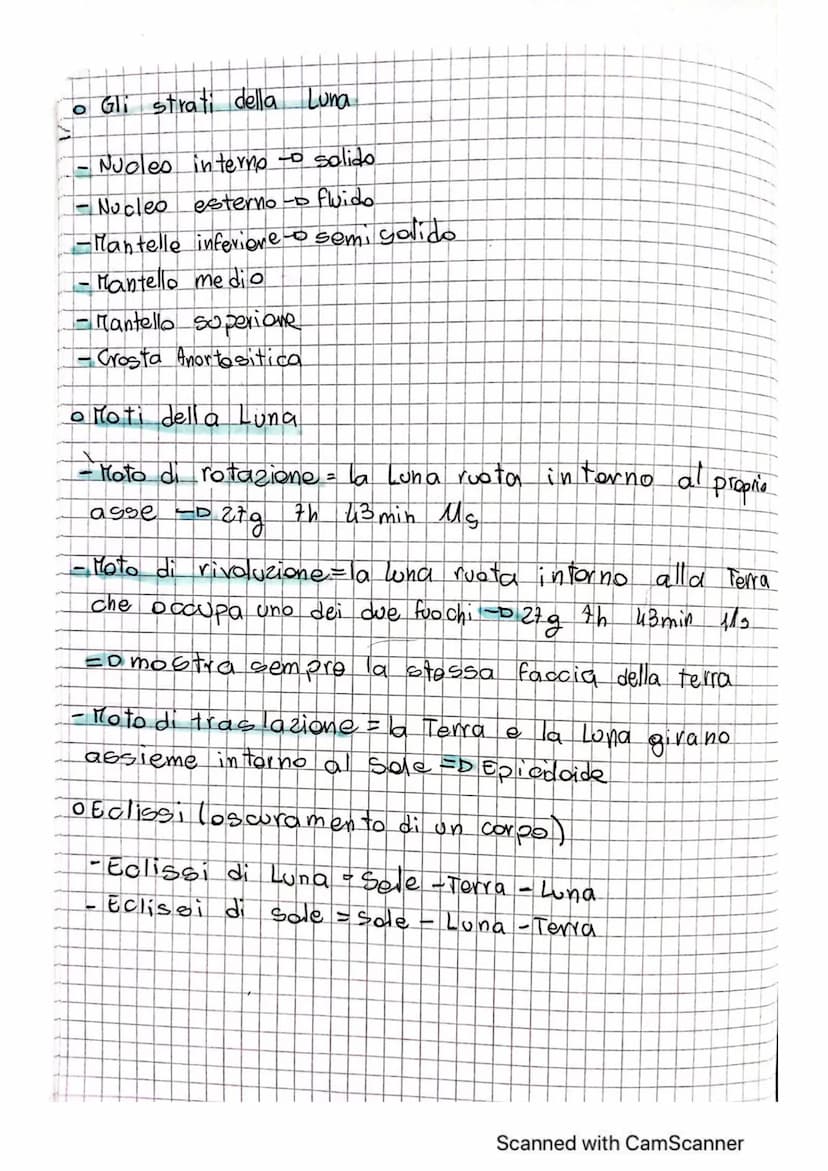 o Gli strati della Luna
- Nucleo interno → solido
- Nucleo esterno → fluido
- Mantelle inferiore → semi solido
- Mantello medio
- Mantello superiore
- Crosta Anortositica
o Moti della Luna
- Moto di rotazione = la Luna ruota intorno al proprio
asse → 27g 7h 43min 11s
- Moto di rivoluzione = la luna ruota intorno alla Terra
che occupa uno dei due fuochi → 27g 7h 43min 11s
⇒ mostra sempre la stessa faccia della terra
- Moto di traslazione = la Terra e la Luna girano
assieme intorno al Sole ⇒ Epicicloide
o Eclissi (oscuramento di un corpo)
- Eclissi di Luna = Sole - Terra - Luna
- Eclissi di sole = Sole - Luna - Terra
Scanned with CamScanner